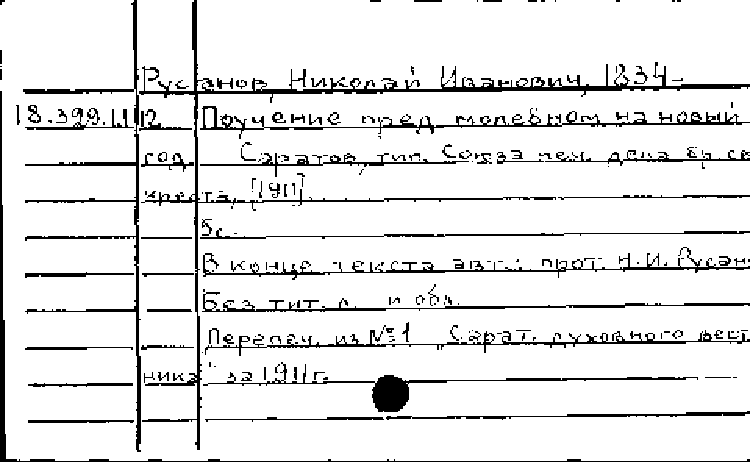 Русанов, Николай Иванович, 1834-
18.399.1.112 Поучение пред молебном на новый
год. Саратов, тип. Союза печ. дела бр. св
креста, [1911].
5с.
В конце текста авт.: прот. Н.И. Русан
Без тит. л. и обл.
Перепеч. из №1 „Сарат. духовного вест
ника" за 1911г.